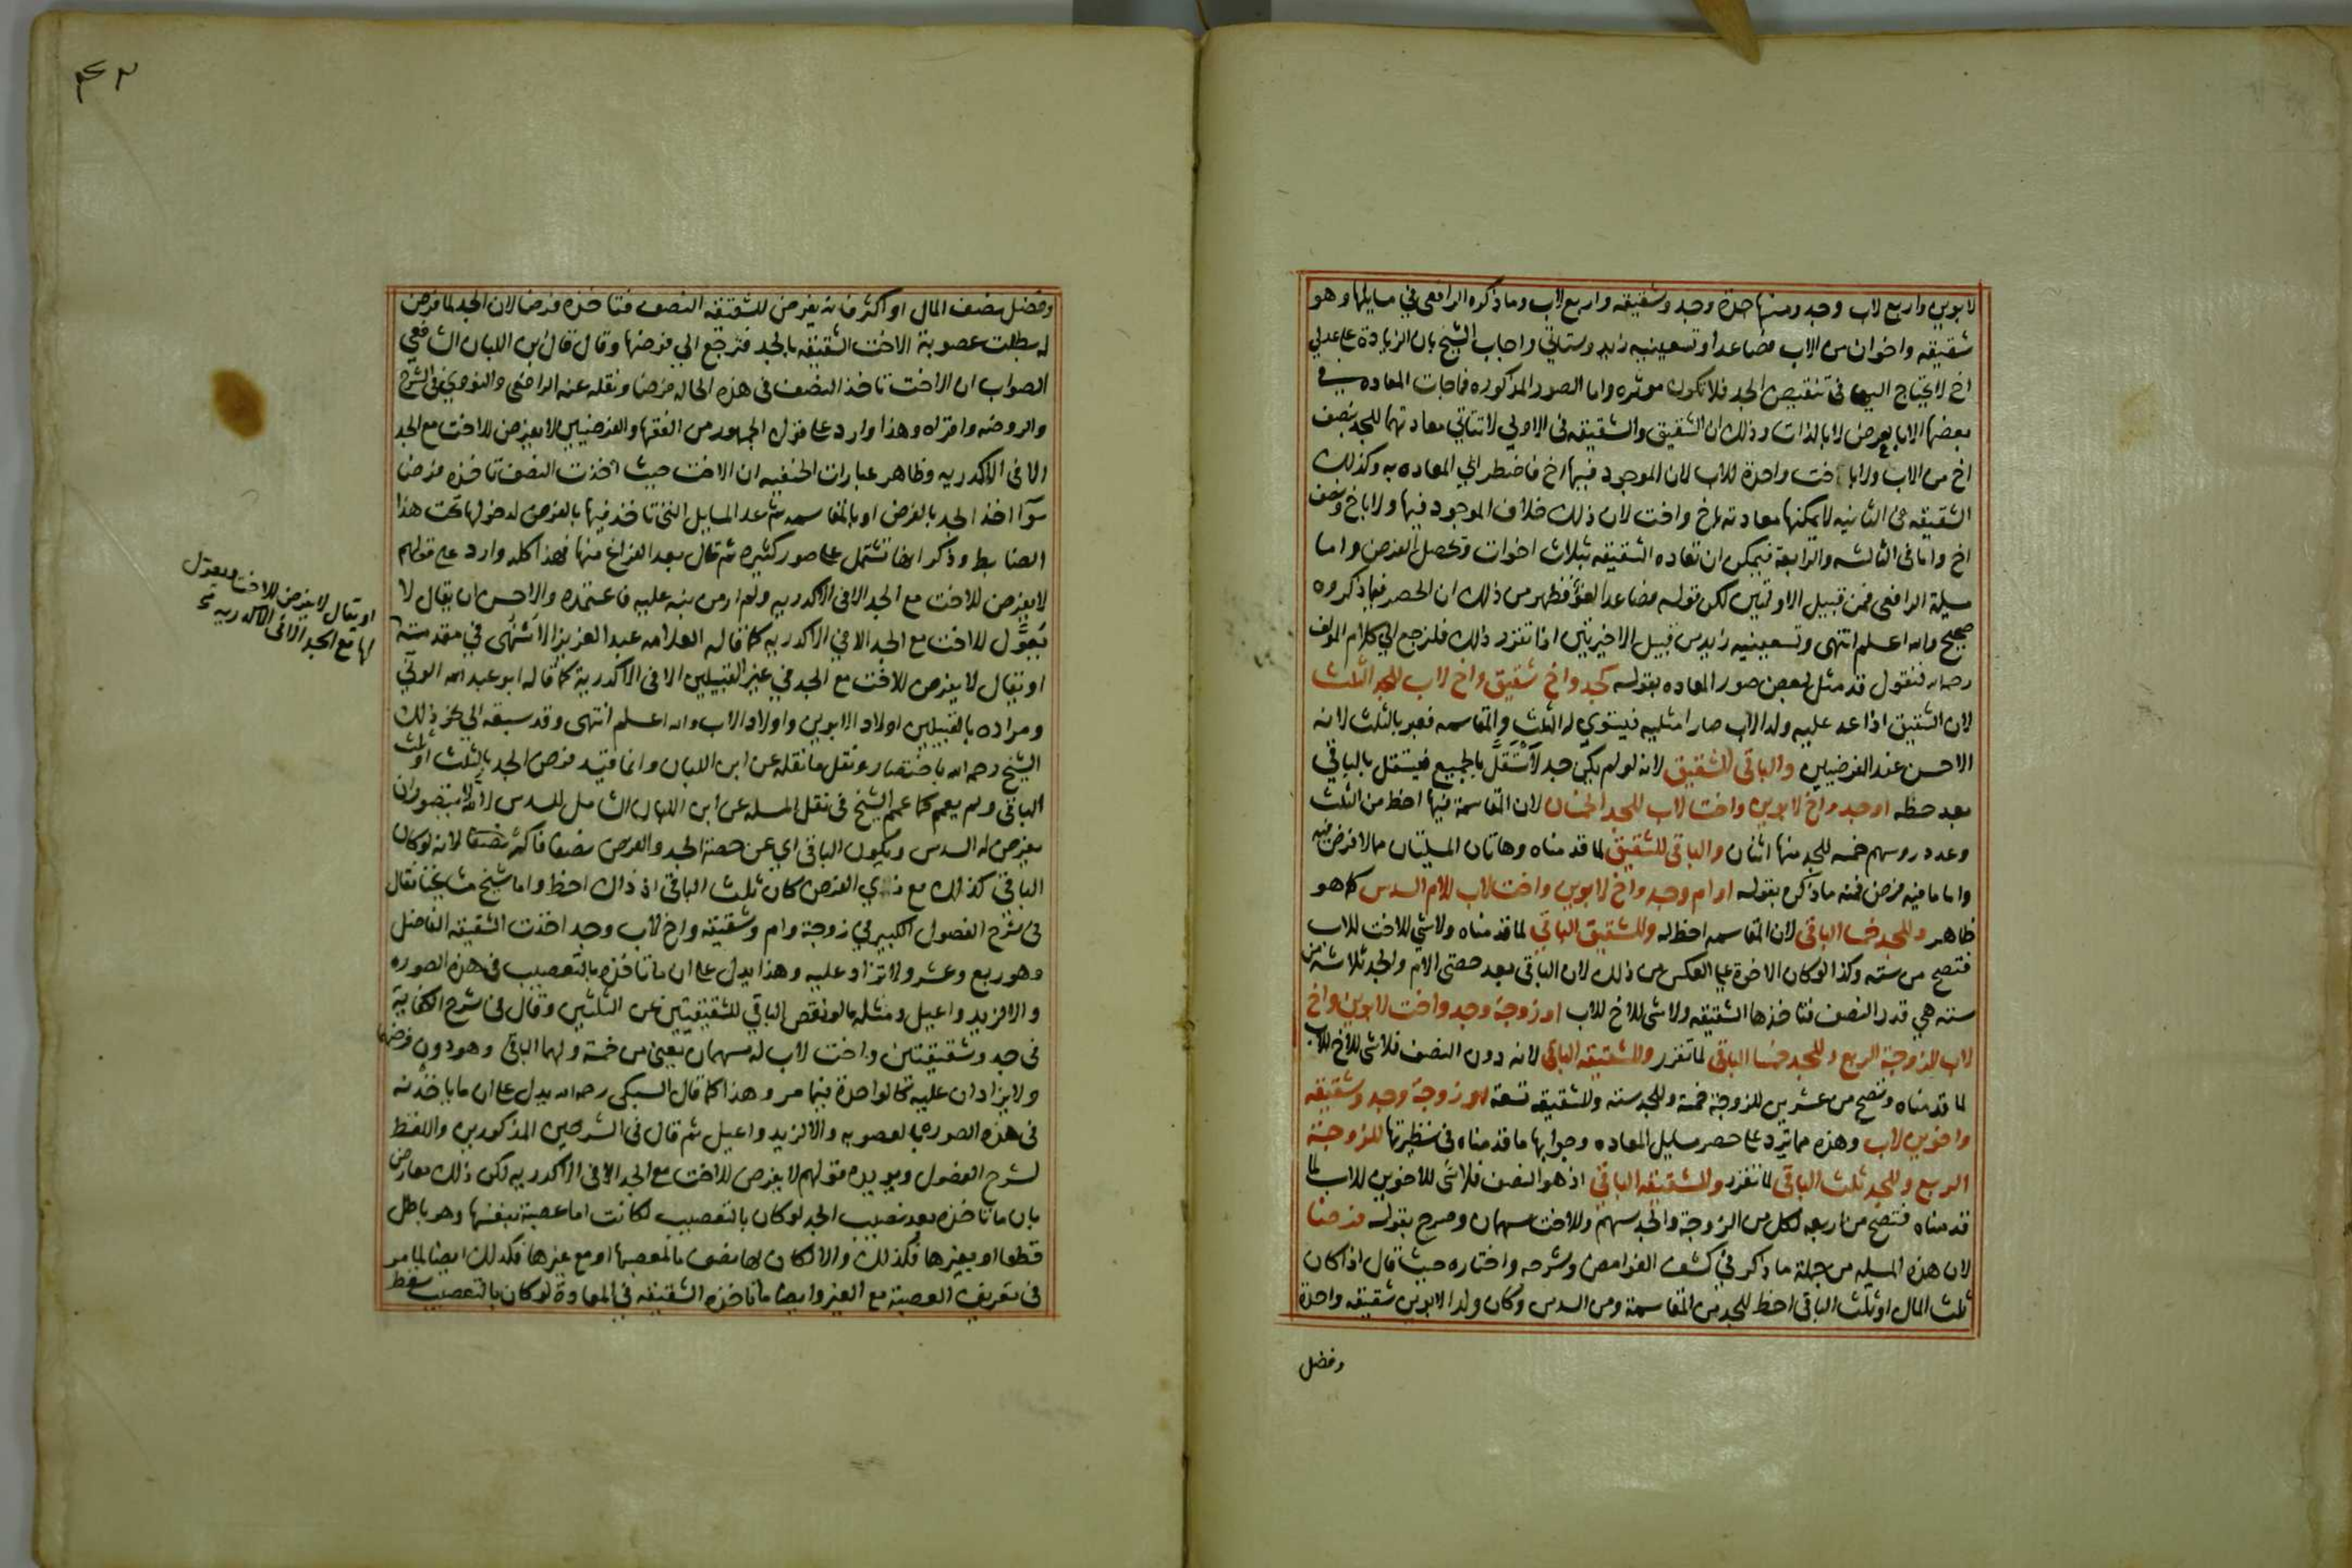 لابوين واربع لاب وجد ومنها جدة وجد وشقيقه واربع لاب وما ذكره الرافعي في مسايلها وهو
شقيقه واخوان من الاب فصاعدا وتسعينيه زيد وستاتي واجاب الشيخ بان الزيادة على عدلي
اخ لا يحتاج اليها في تنقيص الجد فلا تكون موثره واما الصور المذكوره فجات المعاده في
بعضها الا بالعرض لا بالذات وذلك ان الشقيق والشقيقه في الاولي لا تتاتي معادتهما للجد بنصف
اخ من الاب ولا باخت واحدة للاب لان الموجود فيها اخ فاضطر الي المعاده به وكذلك
الشقيقه في الثانيه لا يمكنها معادته باخ واخت لان ذلك خلاف الموجود فيها ولا باخ ونصف
اخ واما في الثالثه والرابعة فيمكن ان تعاده الشقيقه بثلاث اخوات وتحصل الغرض واما
مسيلة الرافعي فمن قبيل الاولتين لكن قوله فصاعدا لغو فظهر من ذلك ان الحصر فيما ذكروه
صحيح والله اعلم انتهى وتسعينيه زيد من قبيل الاخيرتين اذا تقرر ذلك فلنرجع الي كلام المولف
رحمه الله فنقول قد مثل لبعض صور المعاده بقوله كجد واخ شقيق واخ لاب للجد الثلث
لان الشقيق اذا عد عليه ولد الاب صارا مثليه فيستوي له الثلث والمقاسمه فعبر بالثلث لانه
الاحسن عند الفرضيين والباقي للشقيق لانه لو لم يكن جد لاستقل بالجميع فيستقل بالباقي
بعد حظه او جد واخ لابوين واخت لاب للجد الخمسان لان المقاسمة فيها احظ من الثلث
وعدد روسهم خمسه للجد منها اثنان والباقي للشقيق لما قدمناه وهاتان المسيلتان مما لا فرض فيه
واما ما فيه فرض فمنه ما ذكره بقوله او ام وجد واخ لابوين واخت لاب للام السدس كما هو
ظاهر وللجد خمسا الباقي لان المقاسمه احظ له وللشقيق الباقي لما قدمناه ولا شي للاخت للاب
فتصح من سته وكذا لو كان الاخوة على العكس من ذلك لان الباقي بعد حصتي الام والجد ثلاثة من
سته هي قدر النصف فتاخذها الشقيقه ولا شي للاخ للاب او زوجة وجد واخت لابوين واخ
لاب للزوجة الربع وللجد خمسا الباقي لما تقرر وللشقيقه الباقي لانه دون النصف فلا شي للاخ للاب
لما قدمناه وتصح من عشرين للزوجة خمسة وللجد سته وللشقيقه تسعة او زوجة وجد وشقيقه
واخوين لاب وهذه مما ترد على حصر مسايل المعاده وجوابها ما قدمناه في نظيرتها للزوجة
الربع وللجد ثلث الباقي لما تقرر وللشقيقه الباقي اذ هو النصف فلا شي للاخوين للاب لما
قدمناه فتصح من اربعه لكل من الزوجة والجد سهم وللاخت سهمان وصرح بقوله فرضا
لان هذه المسيله من جملة ما ذكر في كشف الغوامض وشرحه واختاره حيث قال اذا كان
ثلث المال او ثلث الباقي احظ للجد من المقاسمة ومن السدس وكان ولد الابوين شقيقه واحدة
وفضل
وفضل نصف المال او اكثر فانه يفرض للشقيقه النصف فتاخذه فرضا لان الجد لما فرض
له بطلت عصوبة الاخت الشقيقه بالجد فترجع الي فرضها وقال قال ابن اللبان الشافعي
الصواب ان الاخت تاخذ النصف في هذه الحاله فرضا ونقله عنه الرافعي والنووي في الشرح
والروضه واقراه وهذا وارد على قول الجمهور من الفقها والفرضيين لا يفرض للاخت مع الجد
الا في الاكدريه وظاهر عبارات الحنفيه ان الاخت حيث اخذت النصف تاخذه فرضا
سوا اخذ الجد بالفرض او بالمقاسمه ثم عد المسايل التي تاخذ فيها بالفرض لدخولها تحت هذا
الضابط وذكر انها تشتمل على صور كثيره ثم قال بعد الفراغ منها فهذا كله وارد على قولهم
لا يفرض للاخت مع الجد الا في الاكدريه ولم ار من نبه عليه فاعتمده والاحسن ان يقال لا
يعول للاخت مع الجد الا في الاكدريه كما قاله العلامه عبد العزيز الاشنهي في مقدمته
او يقال لا يفرض للاخت مع الجد في غير القبيلين الا في الاكدرية كما قاله ابو عبد الله الوني
ومراده بالقبيلين اولاد الابوين واولاد الاب والله اعلم انتهى وقد سبقه الي نحو ذلك
الشيخ رحمه الله باختصار ونقل ما نقله عن ابن اللبان وانما قيد فرض الجد بالثلث او ثلث
الباقي ولم يعمم كما عمم الشيخ في نقل المسله عن ابن اللبان الشامل للسدس لانه لا يتصور ان
يفرض له السدس ويكون الباقي اي عن حصة الجد والفرض نصفا فاكثر نصفا لانه لو كان
الباقي كذلك مع ذي الفرض كان ثلث الباقي اذ ذاك احظ واما شيخ مشايخنا فقال
في شرح الفصول الكبير في زوجة وام وشقيقه واخ لاب وجد اخذت الشقيقه الفاضل
وهو ربع وعشر ولا تزاد عليه وهذا يدل على ان ما تاخذه بالتعصيب في هذه الصوره
والا لزيد واعيل ومثله ما لو نقص الباقي للشقيقتين عن الثلثين وقال في شرح الكفاية
في جد وشقيقتين واخت لاب له سهمان يعني من خمسة ولهما الباقي وهو دون فرضهما
ولا يزادان عليه كالواحدة فيما مر وهذا كما قال السبكي رحمه الله يدل على ان ما ياخذنه
في هذه الصوره بالعصوبه والا لزيد واعيل ثم قال في الشرحين المذكورين واللفظ
لشرح الفصول ويويده قولهم لا يفرض للاخت مع الجد الا في الاكدريه لكن ذلك معارض
بان ما تاخذه بعد نصيب الجد لو كان بالتعصيب لكانت اما عصبة بنفسها وهو باطل
قطعا او بغيرها فكذلك والا لكان لها نصف ما لمعصبها او مع غيرها فكذلك ايضا لما مر
في تعريف العصبة مع الغير وايضا ما تاخذه الشقيقه في المعادة لو كان بالتعصيب سقط
او يقال لا يفرض للاخت ويعول
لها مع الجد الا في الاكدريه